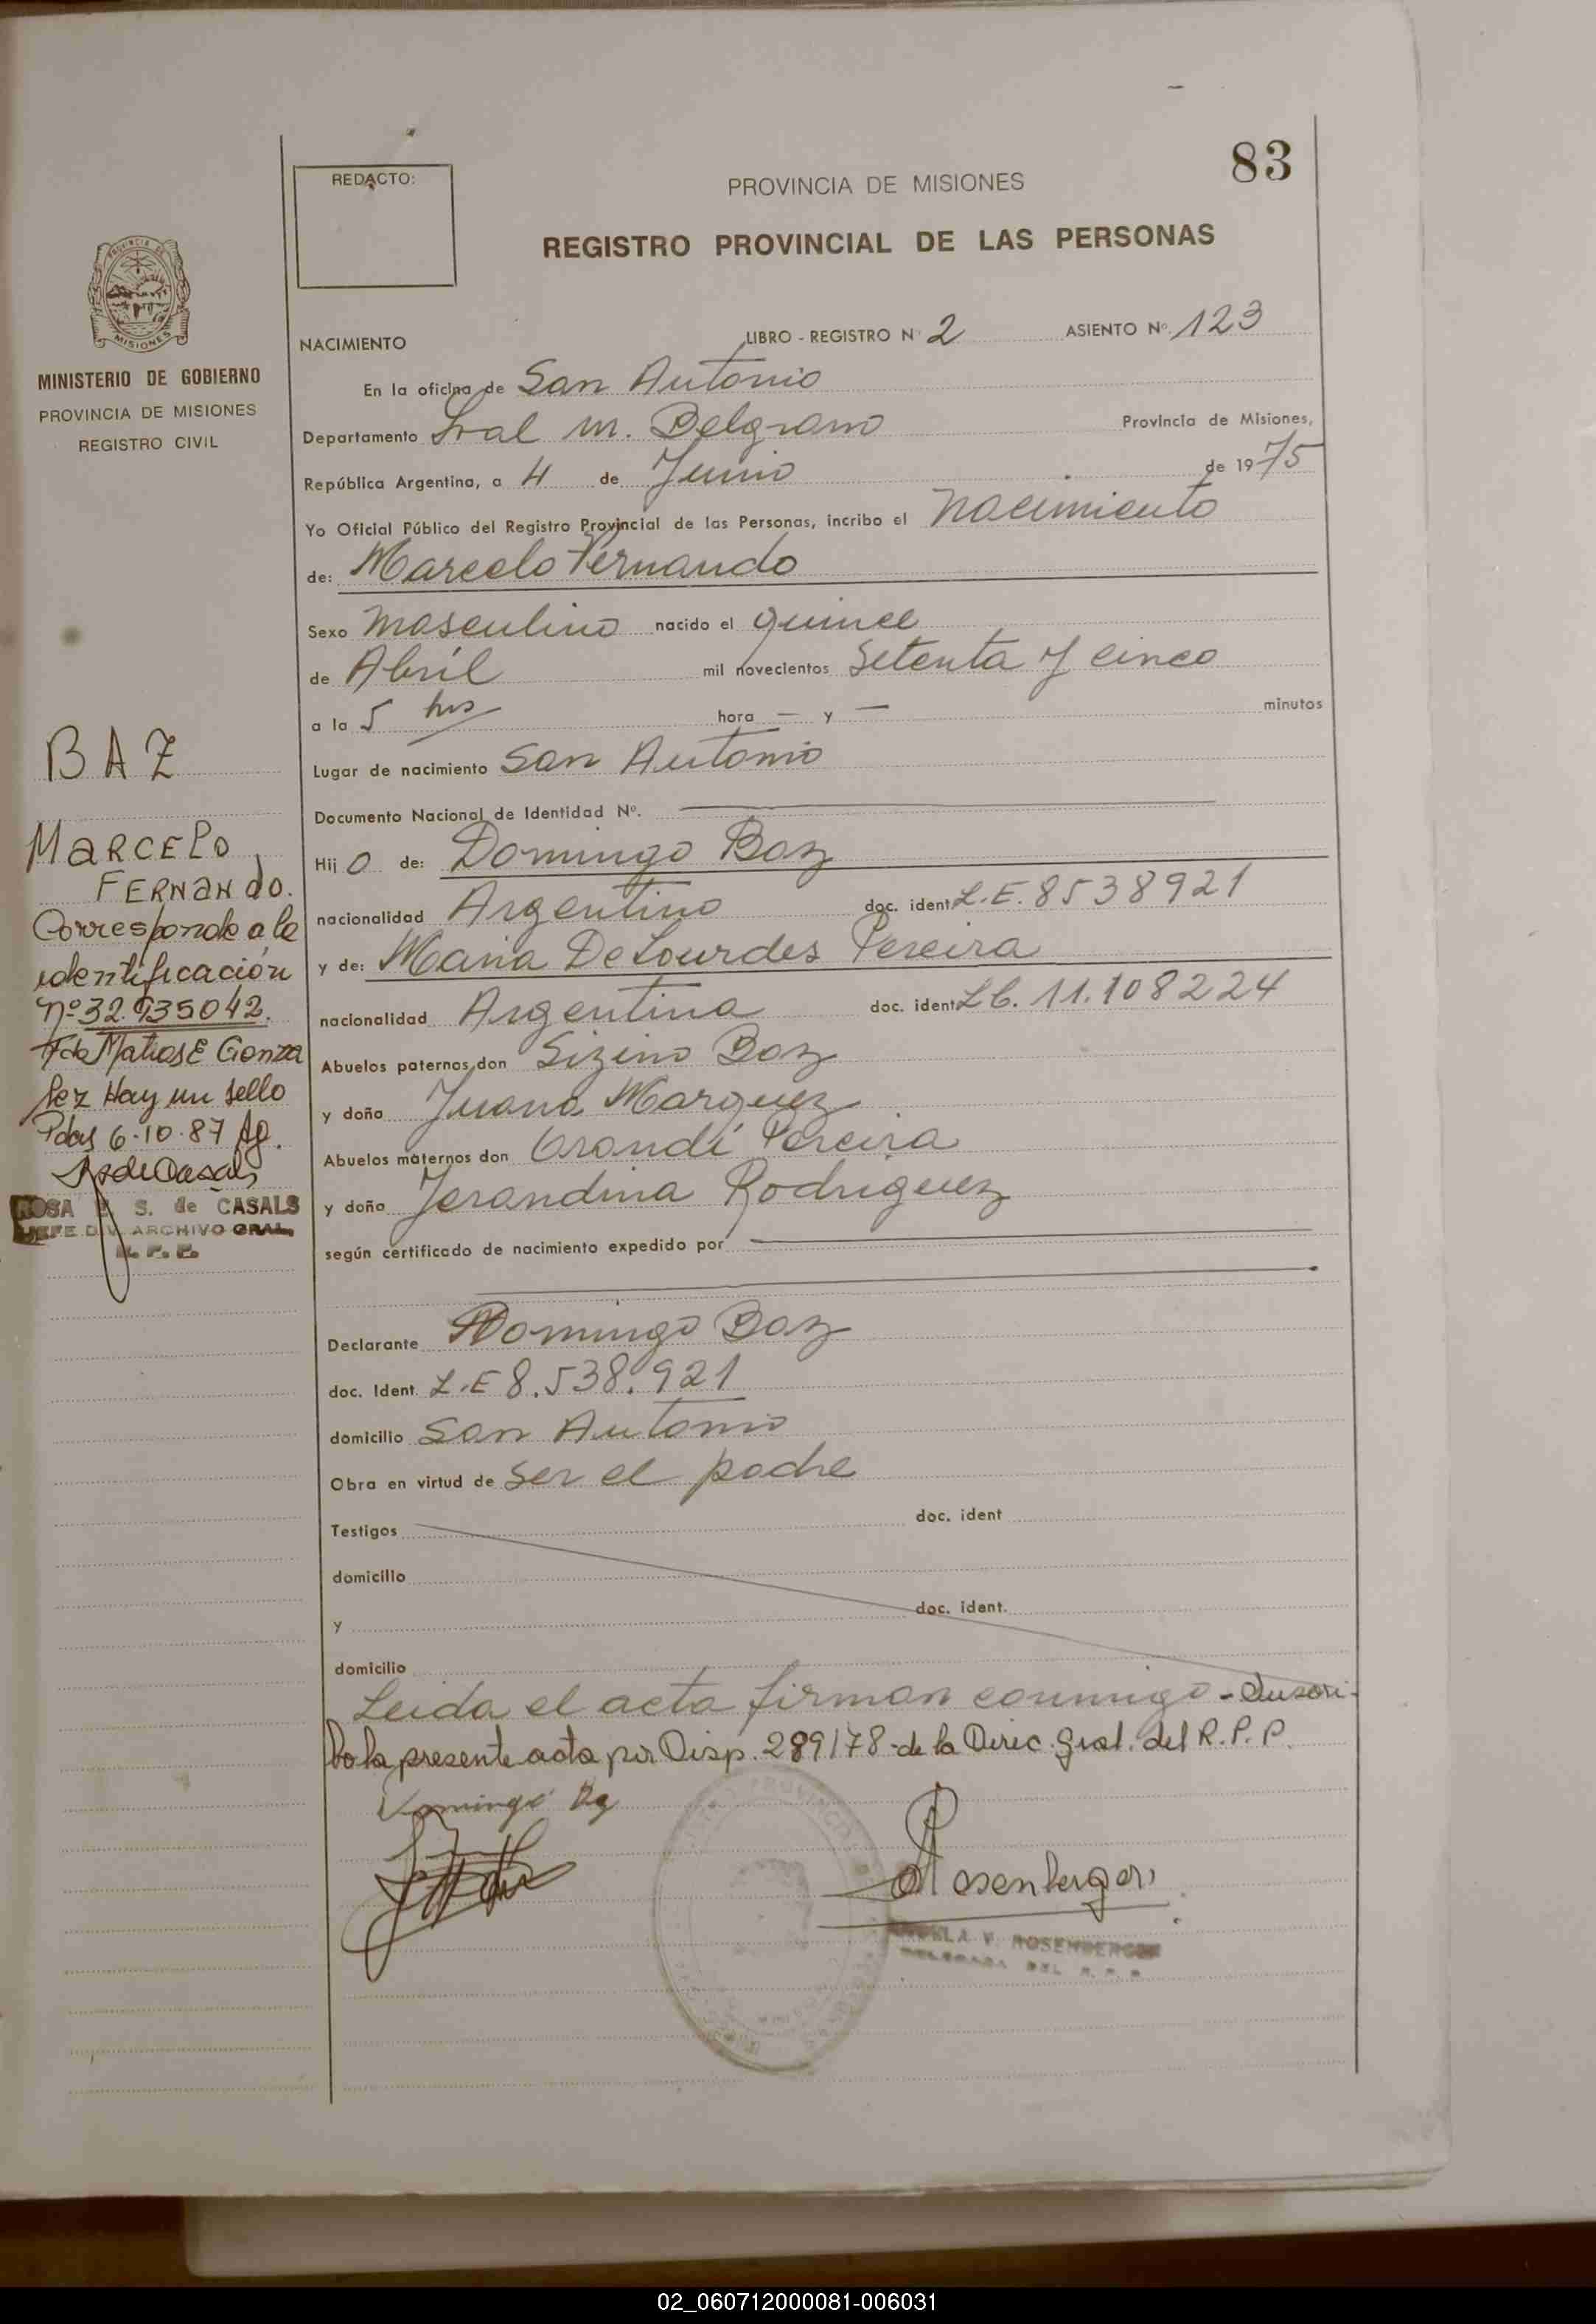 83
REDACTO:
PROVINCIA DE MISIONES
REGISTRO PROVINCIAL DE LAS PERSONAS
MISIONES
MINISTERIO DE GOBIERNO
PROVINCIA DE MISIONES
REGISTRO CIVIL
BAZ
MARCELO
FERNANDO.
Corresponde a la
identificación
Nº 32.935042.
Fdo Matias E Gonza
lez Hay un sello
Pdas 6-10-87
ROSA S. de CASALS
JEFE DIV. ARCHIVO GRAL.
R. P. P.
NACIMIENTO LIBRO - REGISTRO Nº 2 ASIENTO Nº. 123
En la oficina de San Antonio
Departamento Gral M. Belgrano Provincia de Misiones,
República Argentina, a 4 de Junio de 1975
Yo Oficial Público del Registro Provincial de las Personas, incribo el nacimiento
de: Marcelo Fernando
Sexo masculino nacido el quince
de Abril mil novecientos Setenta y cinco
a la 5 hrs hora — y — minutos
Lugar de nacimiento San Antonio
Documento Nacional de Identidad Nº.
Hij o de: Domingo Baz
nacionalidad Argentino doc. ident L.E. 8538921
y de: Maria De Lourdes Pereira
nacionalidad Argentina doc. ident L C. 11.108224
Abuelos paternos don Sizino Baz
y doña Juana Marquez
Abuelos maternos don Orandi Pereira
y doña Jerandina Rodriguez
según certificado de nacimiento expedido por
Declarante Domingo Baz
doc. Ident. L.E 8.538.921
domicilio San Antonio
Obra en virtud de ser el padre
Testigos doc. ident
domicilio
y doc. ident.
domicilio
Leida el acta firman conmigo - Suscri-
bo la presente acta por Disp. 289/78 de la Direc. Gral. del R.P.P.
Domingo Baz
Rosenberger
V. ROSENBERGER
DELEGADA DEL R. P. P.
02_060712000081-006031